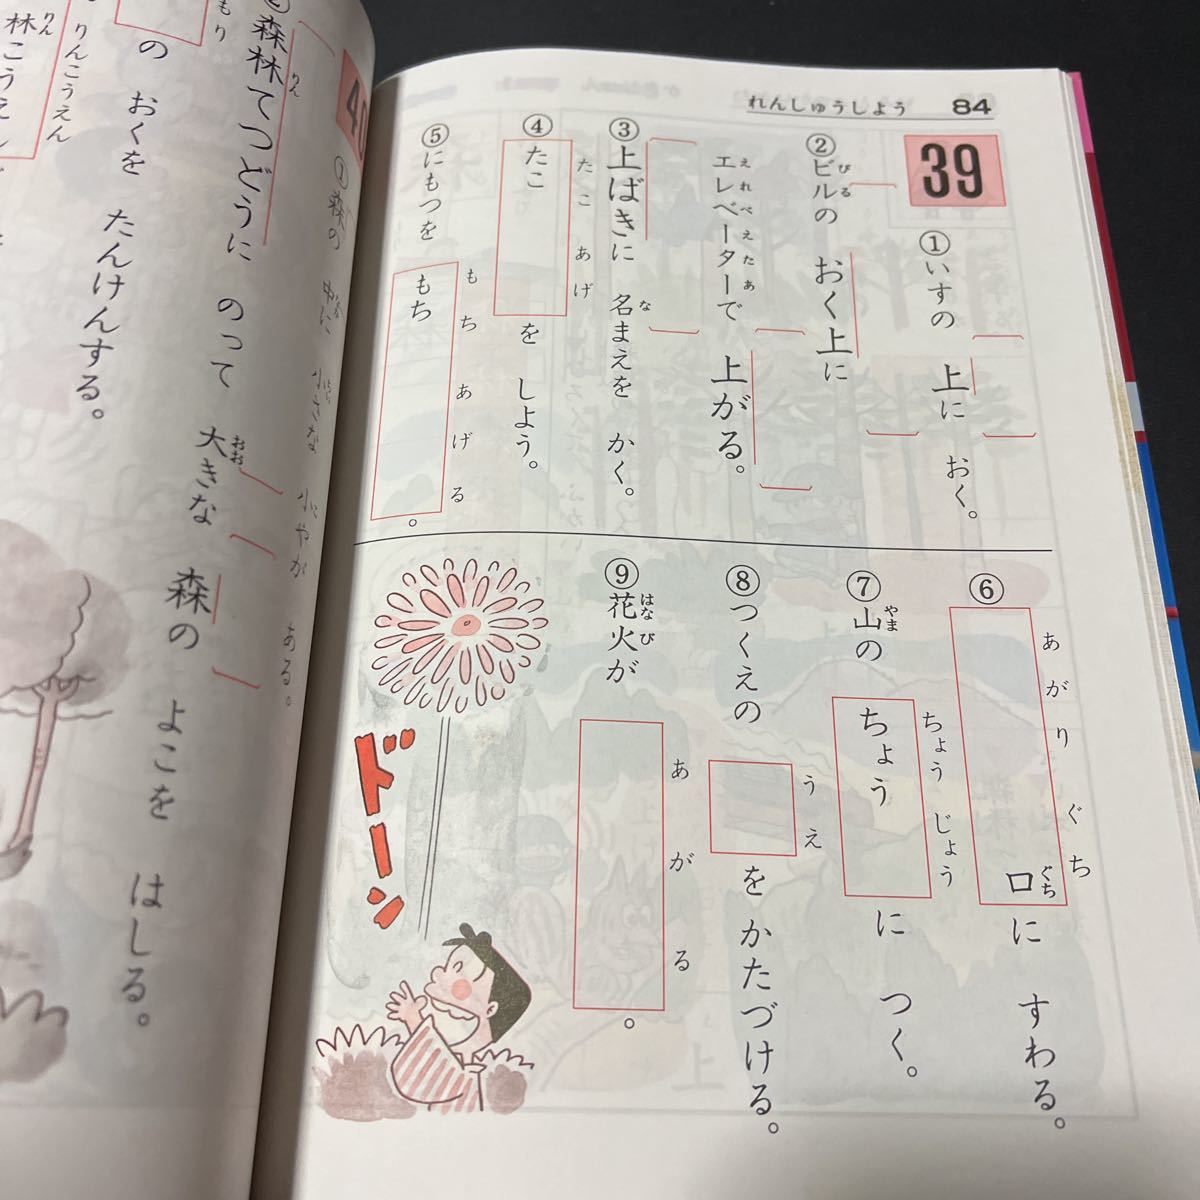 れんしゅうしよう 84
39
①いすの 上に おく。
②ビルの おく上に
びる
エレベーターで 上がる。
えれべえたあ
③上ばきに 名まえを かく。
な
④たこ を しよう。
たこあげ
⑤にもつを もち 。
もちあげる
⑥ 口に すわる。
あがりぐち
ぐち
⑦山の ちょう に つく。
やま
ちょうじょう
⑧つくえの を かたづける。
うえ
⑨花火が 。
はなび
あがる
ドーン
40
①森の 中に 小さな 小やが ある。
なか
ちい
こ
②森林てつどうに のって 大きな 森の よこを はしる。
りん
おお
の おくを たんけんする。
もり
林こうえん
りん
りんこうえん